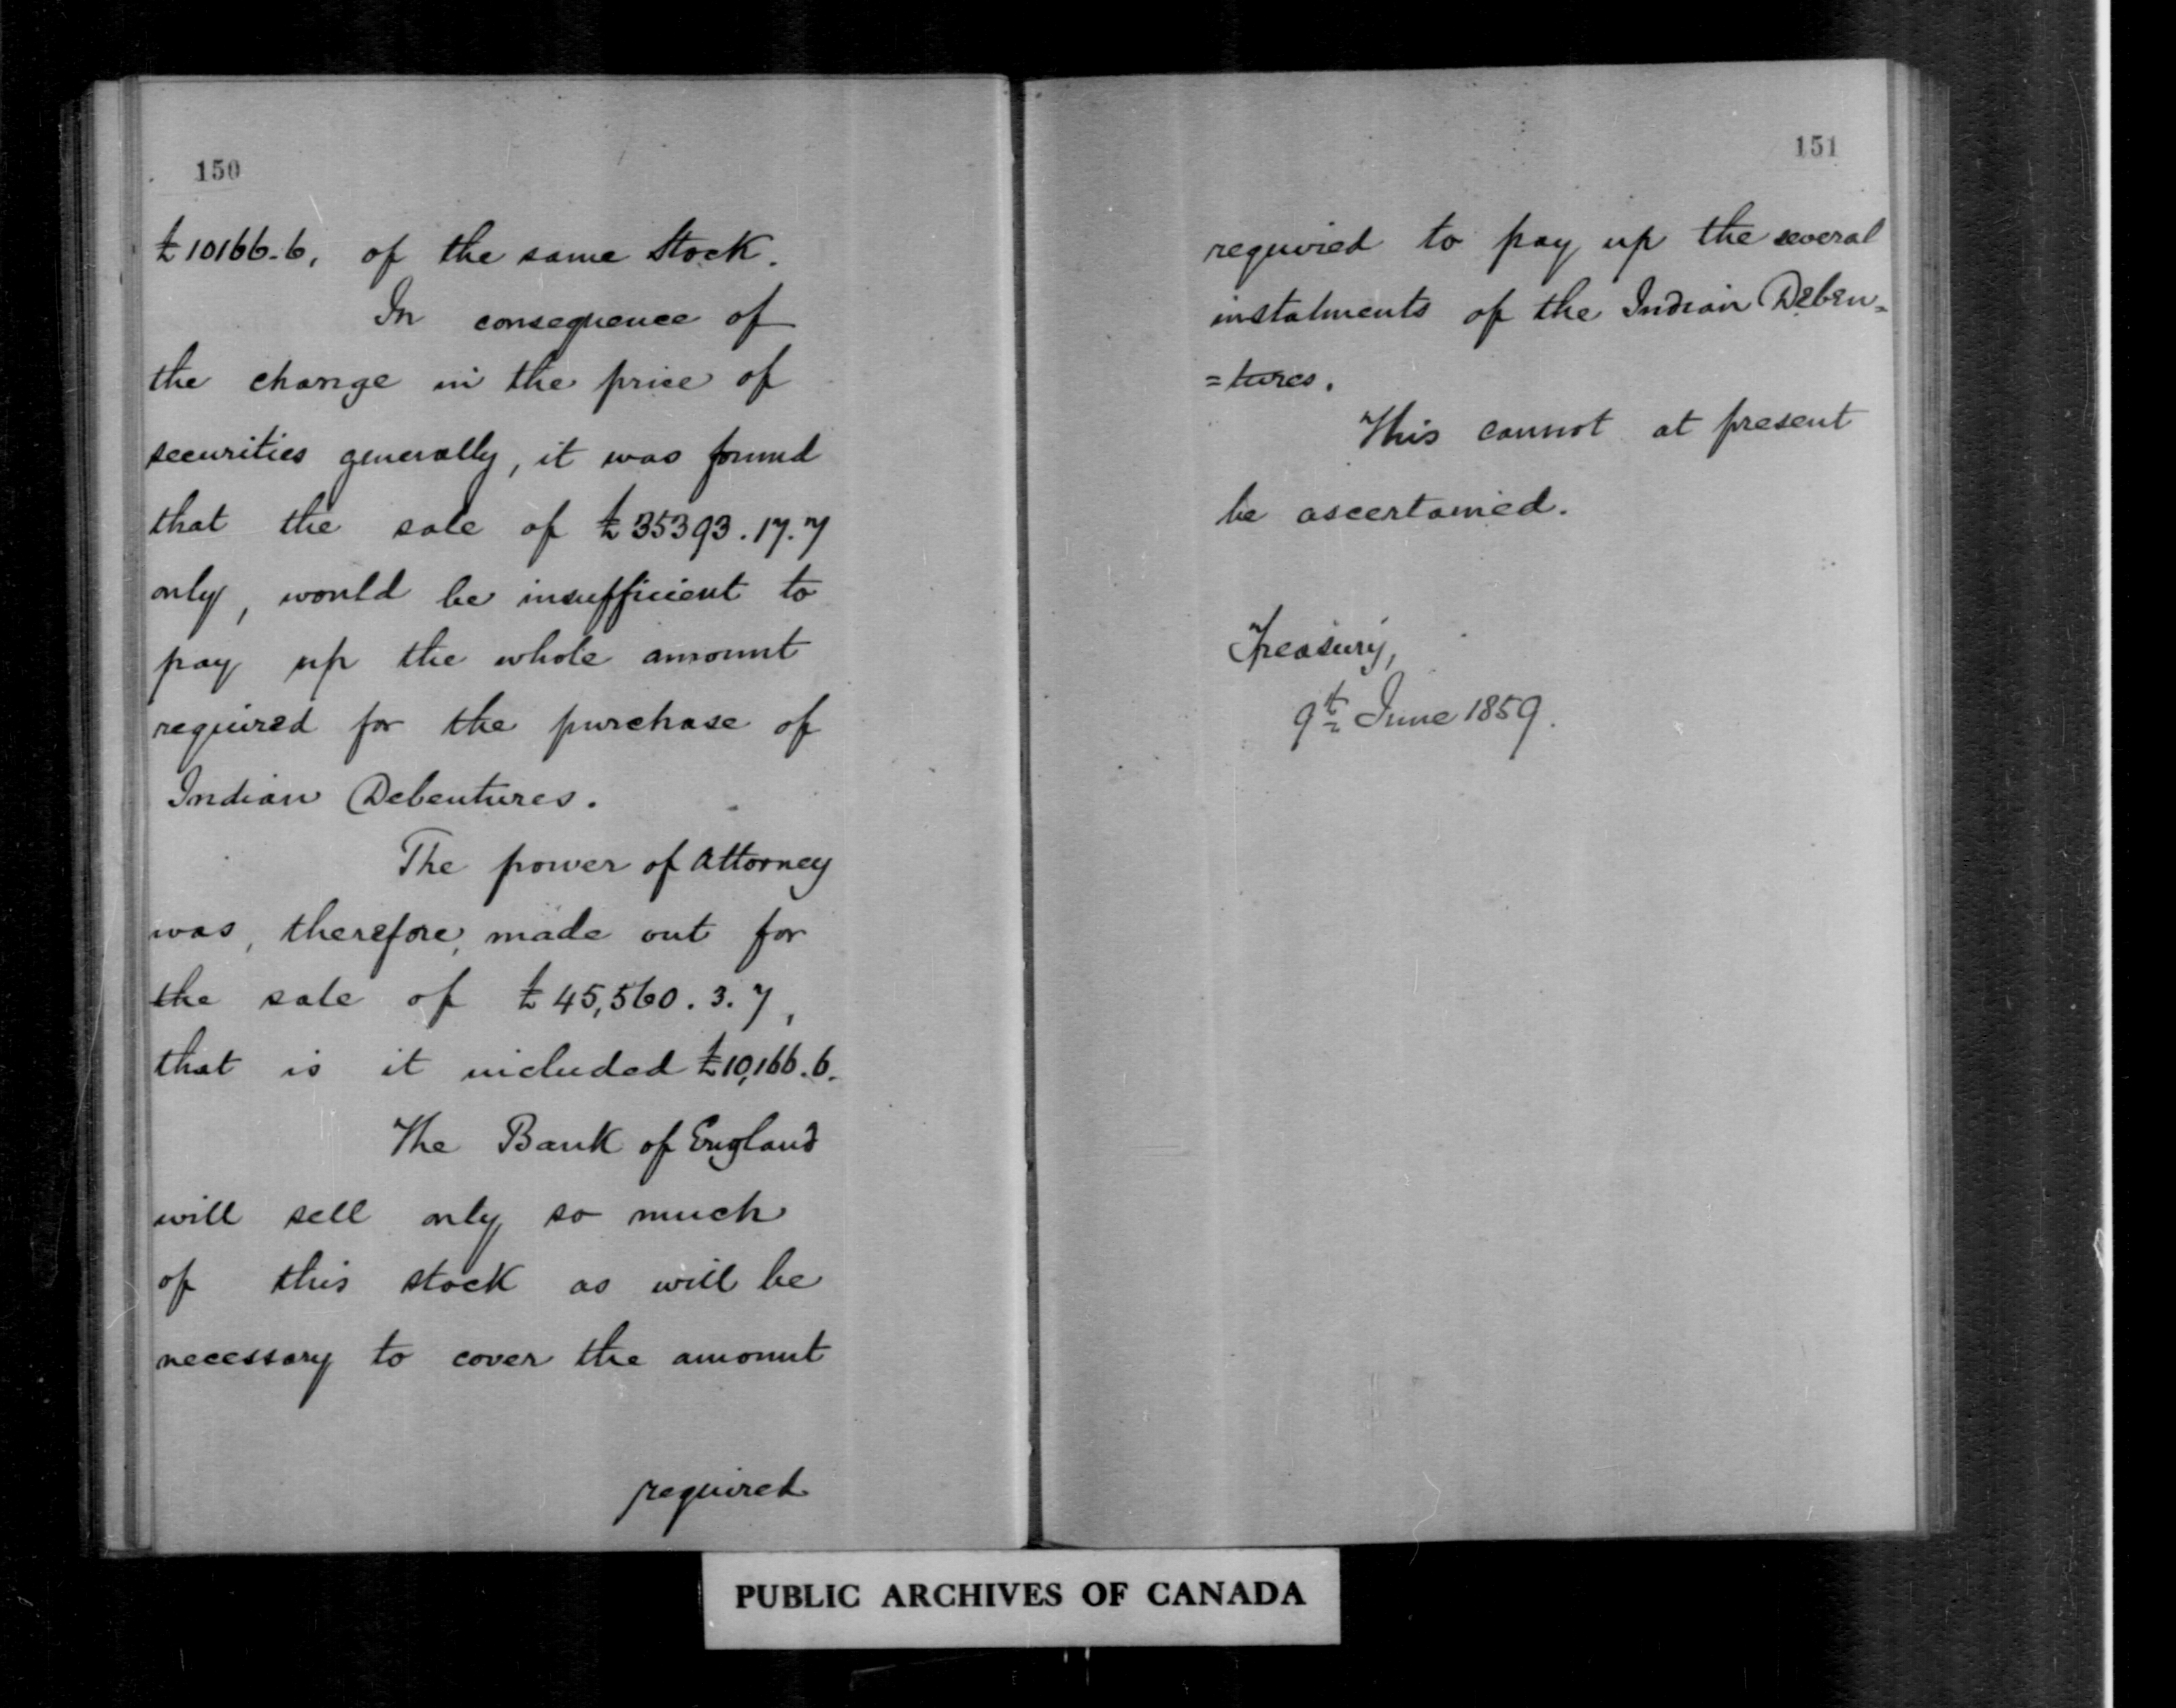 150
£10166.6, of the same Stock.
In consequence of
the change in the price of
securities generally, it was found
that the sale of £35393.17.7
only, would be insufficient to
pay up the whole amount
required for the purchase of
Indian Debentures.
The power of Attorney
was, therefore, made out for
the sale of £45,560.3.7,
that is it included £10,166.6.
The Bank of England
will sell only so much
of this stock as will be
necessary to cover the amount
required
151
required to pay up the several
instalments of the Indian Deben=
=tures.
This cannot at present
be ascertained.
Treasury,
9th June 1859.
PUBLIC ARCHIVES OF CANADA